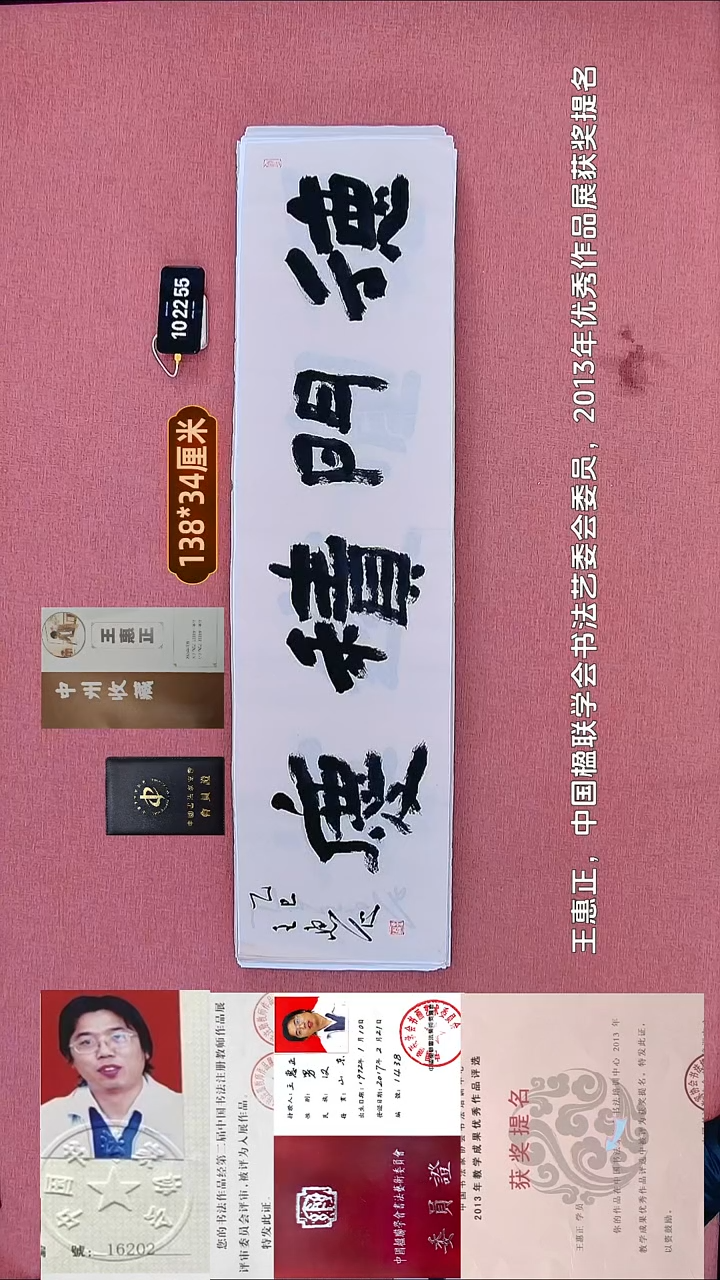 德門積慶
乙巳
王惠正
10 22 55
138*34厘米
王惠正
中州收藏
會員證
王惠正，中国楹联学会书法艺委会委员，2013年优秀作品展获奖提名
16202
您的书法作品经第二届中国书法注册教师作品展
评审委员会评审，被评为入展作品。
特发此证。
持证人：王惠正
性别：男
民族：汉
籍贯：山东
出生日期：1972年1月10日
发证日期：2017年2月21日
编号：1438
中国楹聯學會書法藝術委員會
委員證
2013年教学成果优秀作品评选
获奖提名
王惠正 学员
教学成果优秀作品评选
以资鼓励。